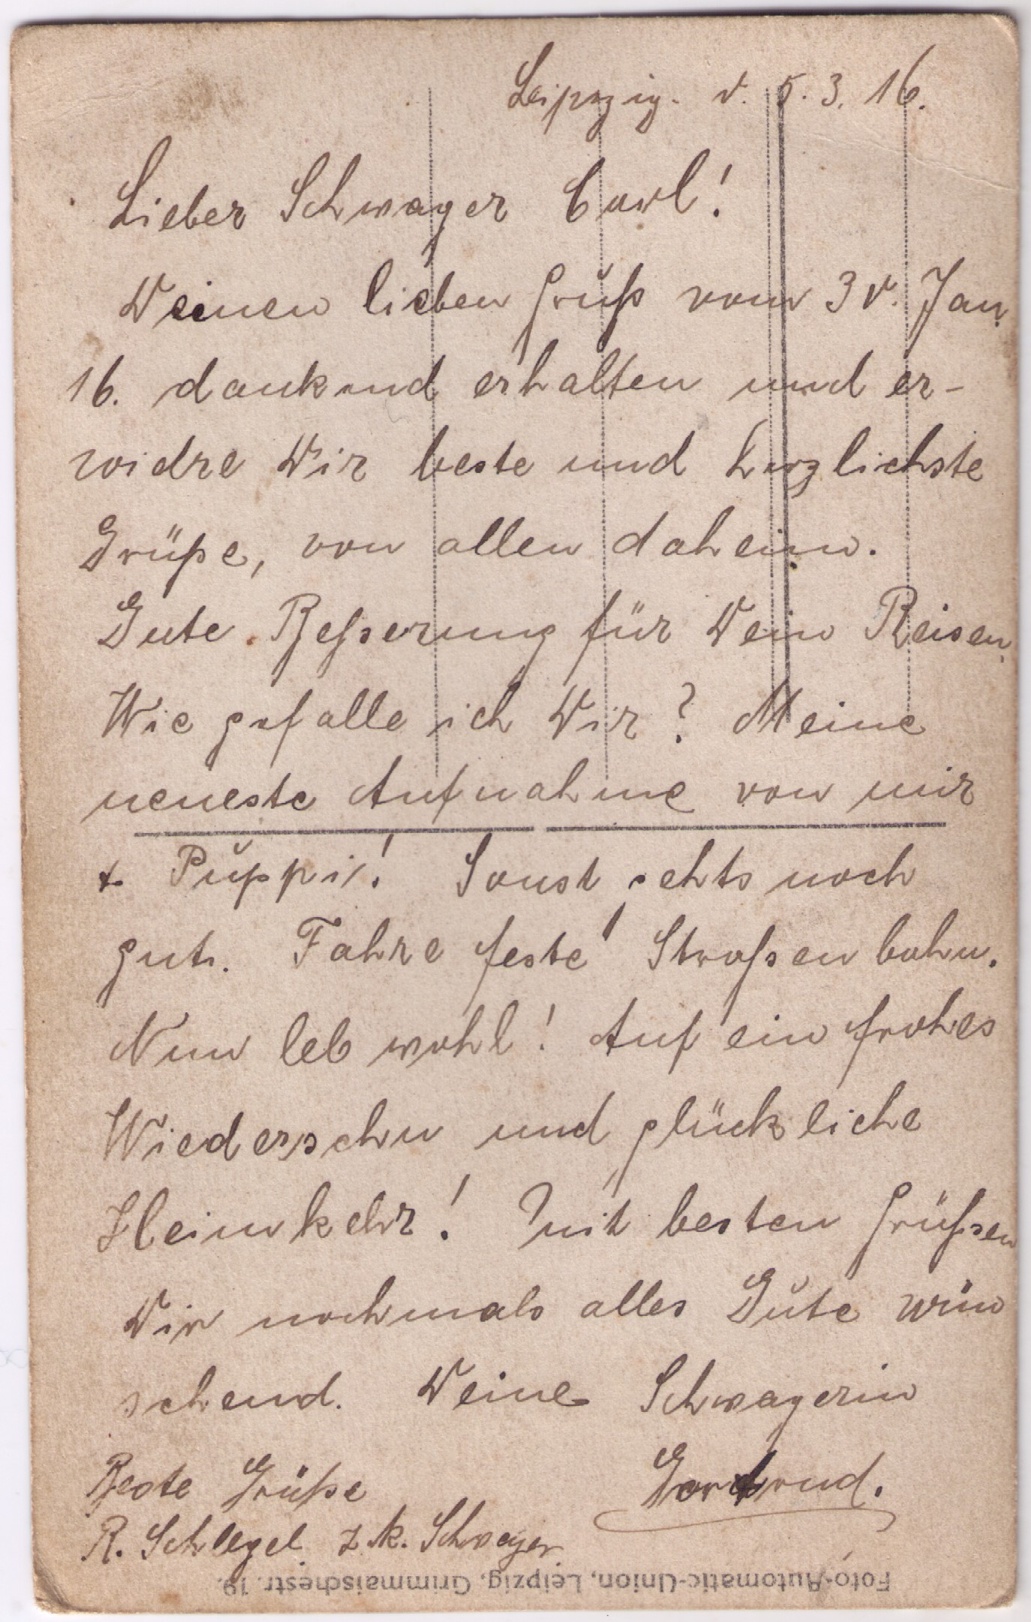 Leipzig. d. 5.3.16.
Lieber Schwager Carl!
Deinen lieben Gruß vom 3 d. Jan.
16. dankend erhalten und er-
widre Dir beste und herzlichste
Grüße, von allen daheim.
Gute Beßerung für Dein Reisen.
Wie gefalle ich Dir? Meine
neueste Aufnahme von mir
+ Puppi! Sonst gehts noch
gut. Fahre feste Straßenbahn.
Nun leb wohl! Auf ein frohes
Wiedersehn und glückliche
Heimkehr! Mit besten Grüßen
Dir nochmals alles Gute wün
schend. Deine Schwägerin
Gertrud.
Beste Grüße
R. Schlegel z. k. Schwager
Foto-Automatic-Union, Leipzig, Grimmaischestr. 19.